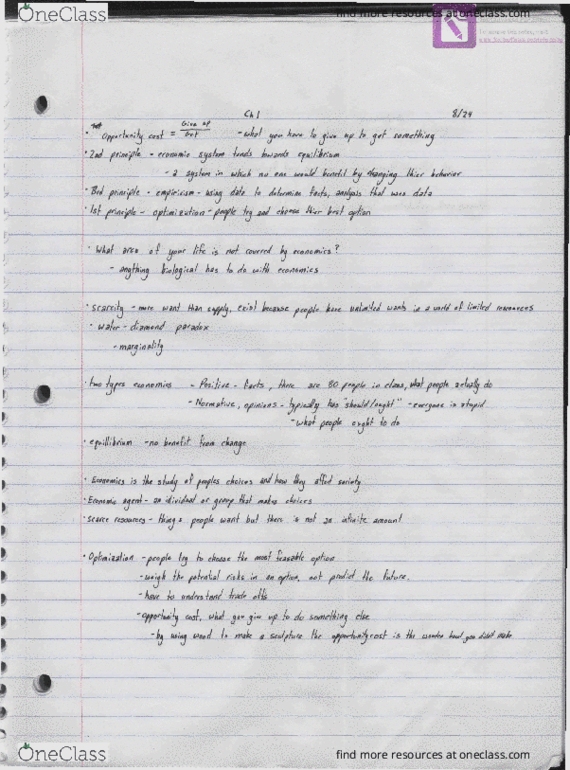 OneClass
find more resources at oneclass.com
Ch 1 8/24
Opportunity cost = Give up / Get - what you have to give up to get something
· 2nd principle - economic system tends towards equilibrium
- a system in which no one would benefit by changing thier behavior
· 3rd principle - empiricism - using data to determine facts, analysis that uses data
· 1st principle - optimization - people try and choose thier best option
· What area of your life is not covered by economics?
- anything biological has to do with economics
· scarcity - more want than supply, exist because people have unlimited wants in a world of limited resources
· water - diamond paradox
- marginality
· two types economics - Positive - facts, there are 80 people in class, what people actually do
- Normative, opinions - typically has "should/ought" - everyone is stupid
- what people ought to do
· equilibrium - no benefit from change
· Economics is the study of peoples choices and how they affect society
· Economic agent - an individual or group that makes choices
· scarce resources - things people want but there is not an infinite amount
· Optimization - people try to choose the most feasable option
- weigh the potential risks in an option, not predict the future.
- have to understand trade offs
- opportunity cost, what you give up to do something else
- by using wood to make a sculpture the opportunity cost is the wooden bowl you didn't make
OneClass
find more resources at oneclass.com